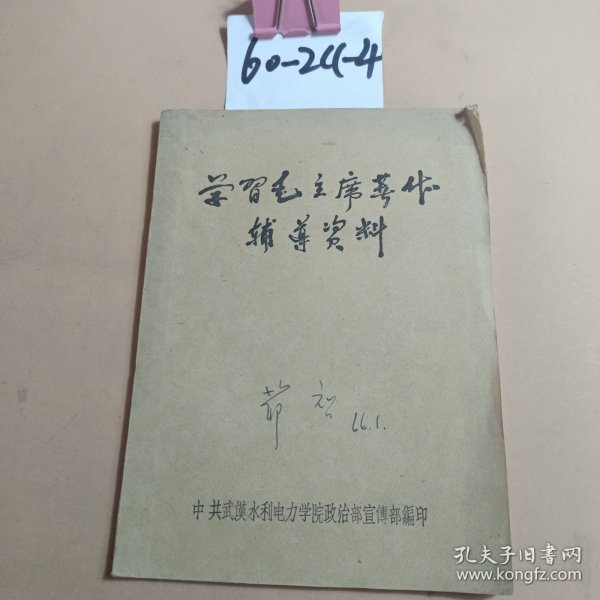 60-24-4
学習毛主席著作
辅导资料
66.1.
中共武漢水利电力学院政治部宣傳部編印
孔夫子旧书网
www.kongfz.com